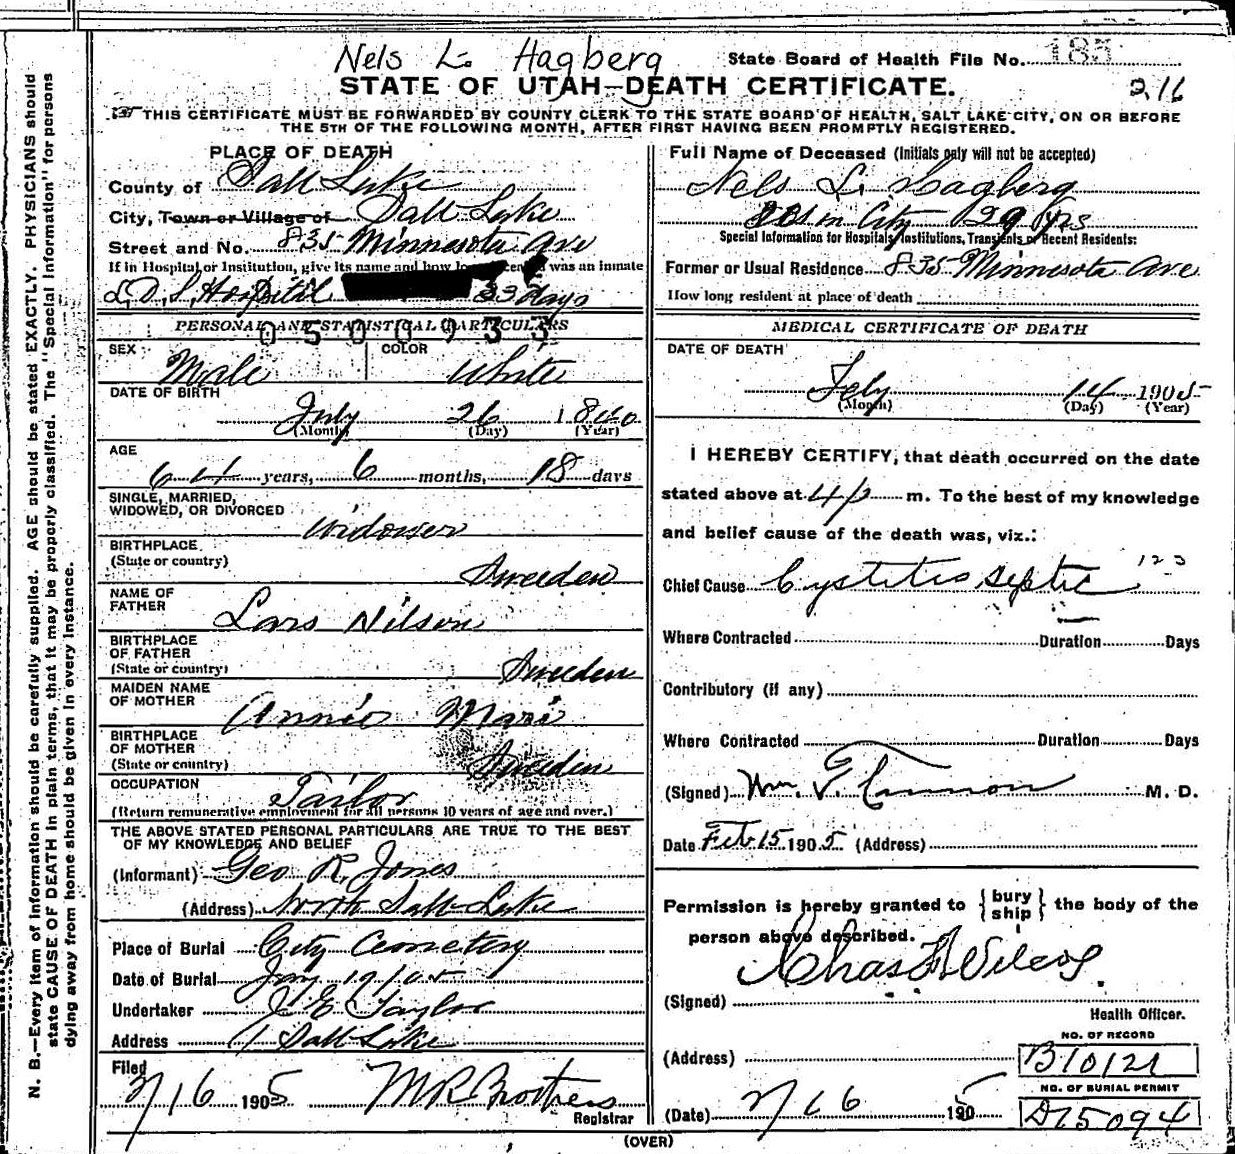 Nels L. Hagberg
State Board of Health File No. 185
STATE OF UTAH—DEATH CERTIFICATE.
216
THIS CERTIFICATE MUST BE FORWARDED BY COUNTY CLERK TO THE STATE BOARD OF HEALTH, SALT LAKE CITY, ON OR BEFORE
THE 5TH OF THE FOLLOWING MONTH, AFTER FIRST HAVING BEEN PROMPTLY REGISTERED.
N. B.—Every item of information should be carefully supplied. AGE should be stated EXACTLY. PHYSICIANS should
state CAUSE OF DEATH in plain terms, that it may be properly classified. The "Special Information" for persons
dying away from home should be given in every instance.
PLACE OF DEATH
County of Salt Lake
City, Town or Village of Salt Lake
Street and No. 835 Minnesota Ave
If in Hospital or Institution, give its name and how long deceased was an inmate
L.D.S. Hospital 33 days
PERSONAL AND STATISTICAL PARTICULARS
0500933
SEX Male COLOR White
DATE OF BIRTH
July 26 1840
(Month) (Day) (Year)
AGE
64 years, 6 months, 18 days
SINGLE, MARRIED,
WIDOWED, OR DIVORCED Widower
BIRTHPLACE
(State or country) Sweeden
NAME OF
FATHER Lars Nilson
BIRTHPLACE
OF FATHER
(State or country) Sweeden
MAIDEN NAME
OF MOTHER Annie Mari
BIRTHPLACE
OF MOTHER
(State or country) Sweeden
OCCUPATION Tailor
(Return remunerative employment for all persons 10 years of age and over.)
THE ABOVE STATED PERSONAL PARTICULARS ARE TRUE TO THE BEST
OF MY KNOWLEDGE AND BELIEF
(Informant) Geo R. Jones
(Address) North Salt Lake
Place of Burial City Cemetery
Date of Burial Jan 19/05
Undertaker Taylor
Address Salt Lake
Filed
2/16 1905
Registrar
Full Name of Deceased (Initials only will not be accepted)
Nels L. Hagberg
in City 29 Yrs
Special Information for Hospitals, Institutions, Transients or Recent Residents:
Former or Usual Residence 835 Minnesota Ave
How long resident at place of death
MEDICAL CERTIFICATE OF DEATH
DATE OF DEATH
Feby 14 1905
(Month) (Day) (Year)
I HEREBY CERTIFY, that death occurred on the date
stated above at 4 p m. To the best of my knowledge
and belief cause of the death was, viz.:
Chief Cause Cystitis septic 123
Where Contracted Duration Days
Contributory (if any)
Where Contracted Duration Days
(Signed) Wm. F. Cannon M. D.
Date Feb 15 1905 (Address)
Permission is hereby granted to { bury ship } the body of the
person above described.
(Signed) Chas F Wilcox
Health Officer.
(Address)
NO. OF RECORD
B10121
NO. OF BURIAL PERMIT
D15094
(Date) 2/16 1905
(OVER)